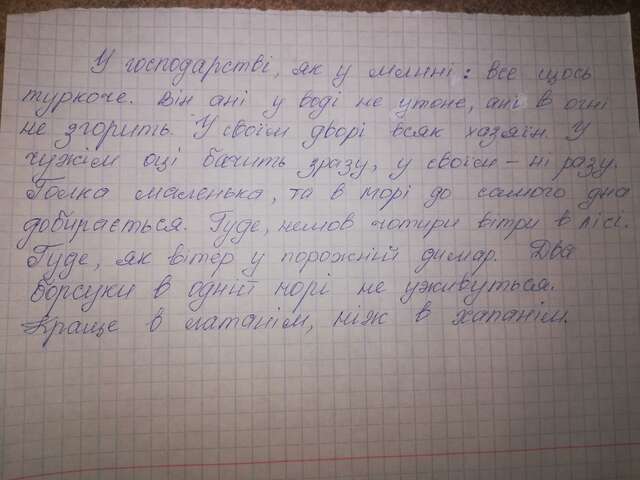 У господарстві, як у млині: все щось
туркоче. Він ані у воді не утоне, ані в огні
не згорить. У своїм дворі всяк хазяїн. У
чужім оці бачить зразу, у своїм – ні разу.
Голка маленька, та в морі до самого дна
добирається. Гуде, немов чотири вітри в лісі.
Гуде, як вітер у порожній димар. Два
борсуки в одній норі не уживуться.
Краще в латанім, ніж в хапанім.